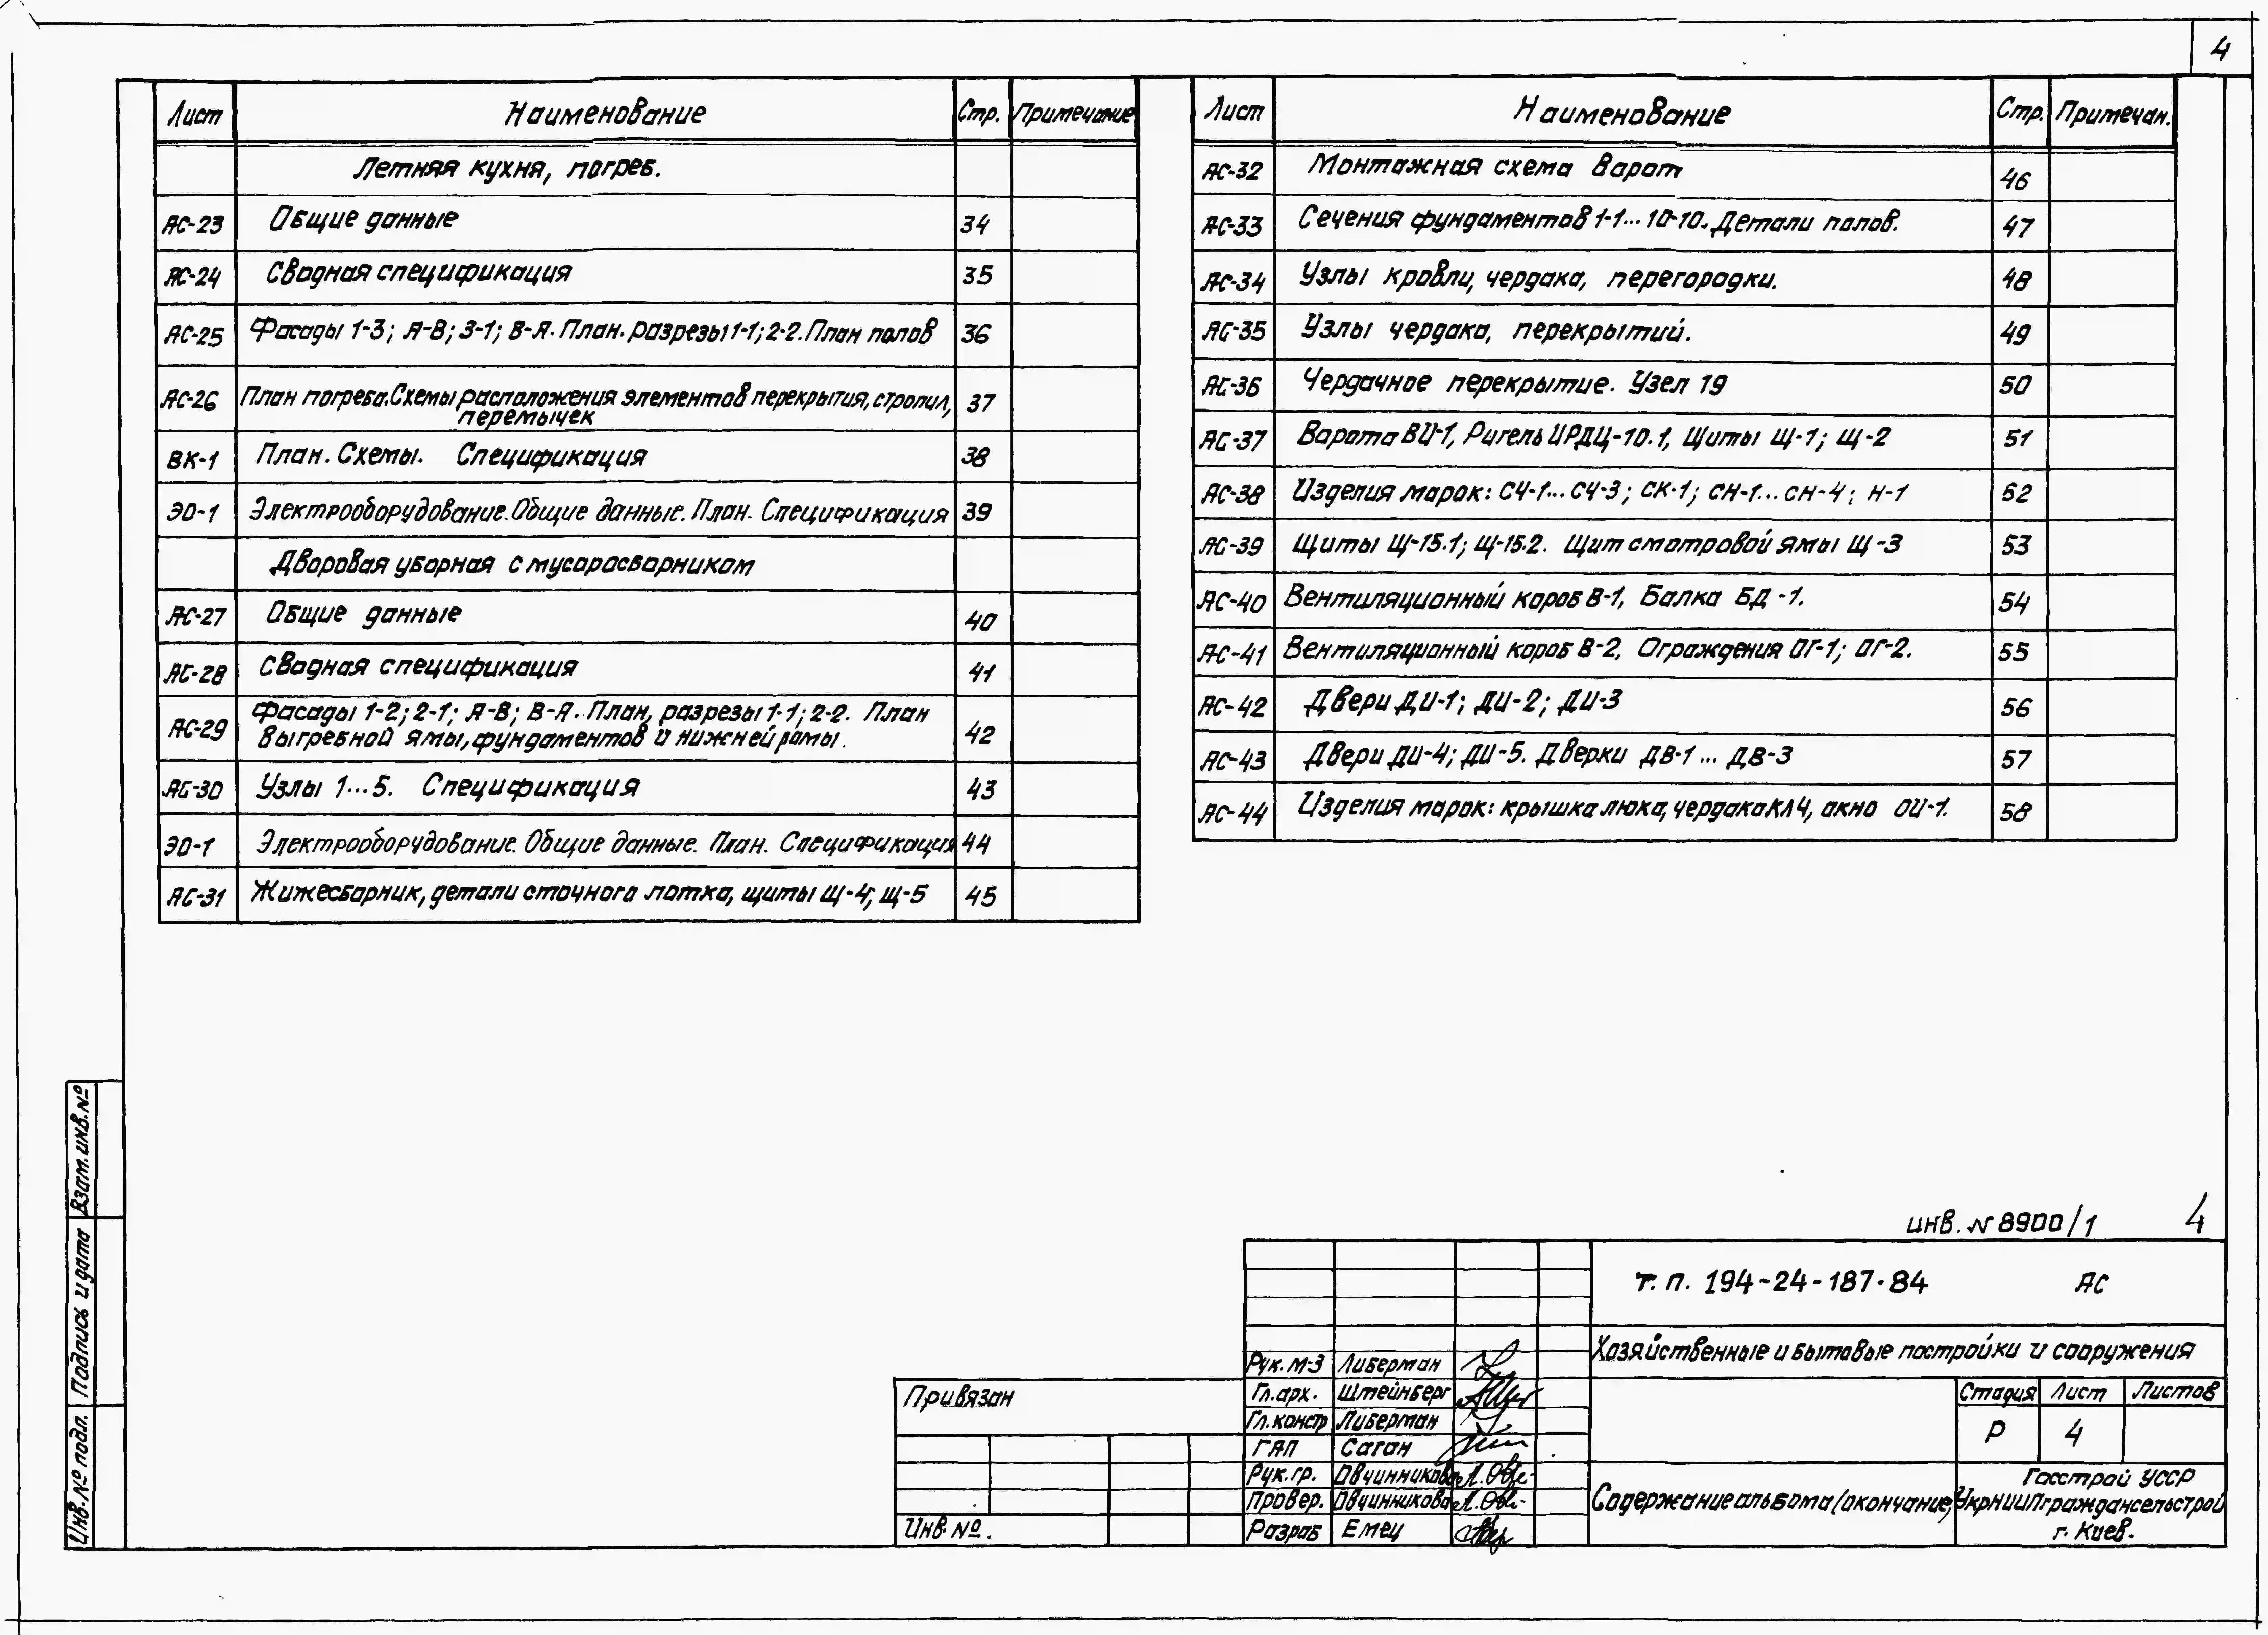 4
Лист Наименование Стр. Примечание
Летняя кухня, погреб.
АС-23 Общие данные 34
АС-24 Сводная спецификация 35
АС-25 Фасады 1-3; А-В; 3-1; В-А. План. разрезы 1-1; 2-2. План полов 36
АС-26 План погреба. Схемы расположения элементов перекрытия, стропил, 37
перемычек
ВК-1 План. Схемы. Спецификация 38
ЭО-1 Электрооборудование. Общие данные. План. Спецификация 39
Дворовая уборная с мусоросборником
АС-27 Общие данные 40
АС-28 Сводная спецификация 41
АС-29 Фасады 1-2; 2-1; А-В; В-А. План, разрезы 1-1; 2-2. План 42
выгребной ямы, фундаментов и нижней рамы.
АС-30 Узлы 1...5. Спецификация 43
ЭО-1 Электрооборудование. Общие данные. План. Спецификация 44
АС-31 Жижесборник, детали сточного лотка, щиты Щ-4; Щ-5 45
Лист Наименование Стр. Примечан.
АС-32 Монтажная схема ворот 46
АС-33 Сечения фундаментов 1-1... 10-10. Детали полов. 47
АС-34 Узлы кровли, чердака, перегородки. 48
АС-35 Узлы чердака, перекрытий. 49
АС-36 Чердачное перекрытие. Узел 19 50
АС-37 Ворота ВИ-1, Ригель ИРДЦ-10.1, Щиты Щ-1; Щ-2 51
АС-38 Изделия марок: СЧ-1... СЧ-3; СК-1; СН-1... СН-4; Н-1 52
АС-39 Щиты Щ-15.1; Щ-15.2. Щит смотровой ямы Щ-3 53
АС-40 Вентиляционный короб В-1, Балка БД-1. 54
АС-41 Вентиляционный короб В-2, Ограждения ОГ-1; ОГ-2. 55
АС-42 Двери ДИ-1; ДИ-2; ДИ-3 56
АС-43 Двери ДИ-4; ДИ-5. Дверки ДВ-1... ДВ-3 57
АС-44 Изделия марок: крышка люка, чердака КЛЧ, окно ОИ-1. 58
Взам. инв. №
Подпись и дата
Инв. № подл.
инв. № 8900/1 4
Т. п. 194-24-187.84 АС
Хозяйственные и бытовые постройки и сооружения
Рук. М-3 Либерман
Гл. арх. Штейнберг
Гл. констр Либерман
ГАП Саган
Рук. гр. Овчинникова
Провер. Овчинникова
Разраб Емец
Стадия Лист Листов
Р 4
Содержание альбома (окончание)
Госстрой УССР
УкрНИИПграждансельстрой
г. Киев.
Привязан
Инв. №.